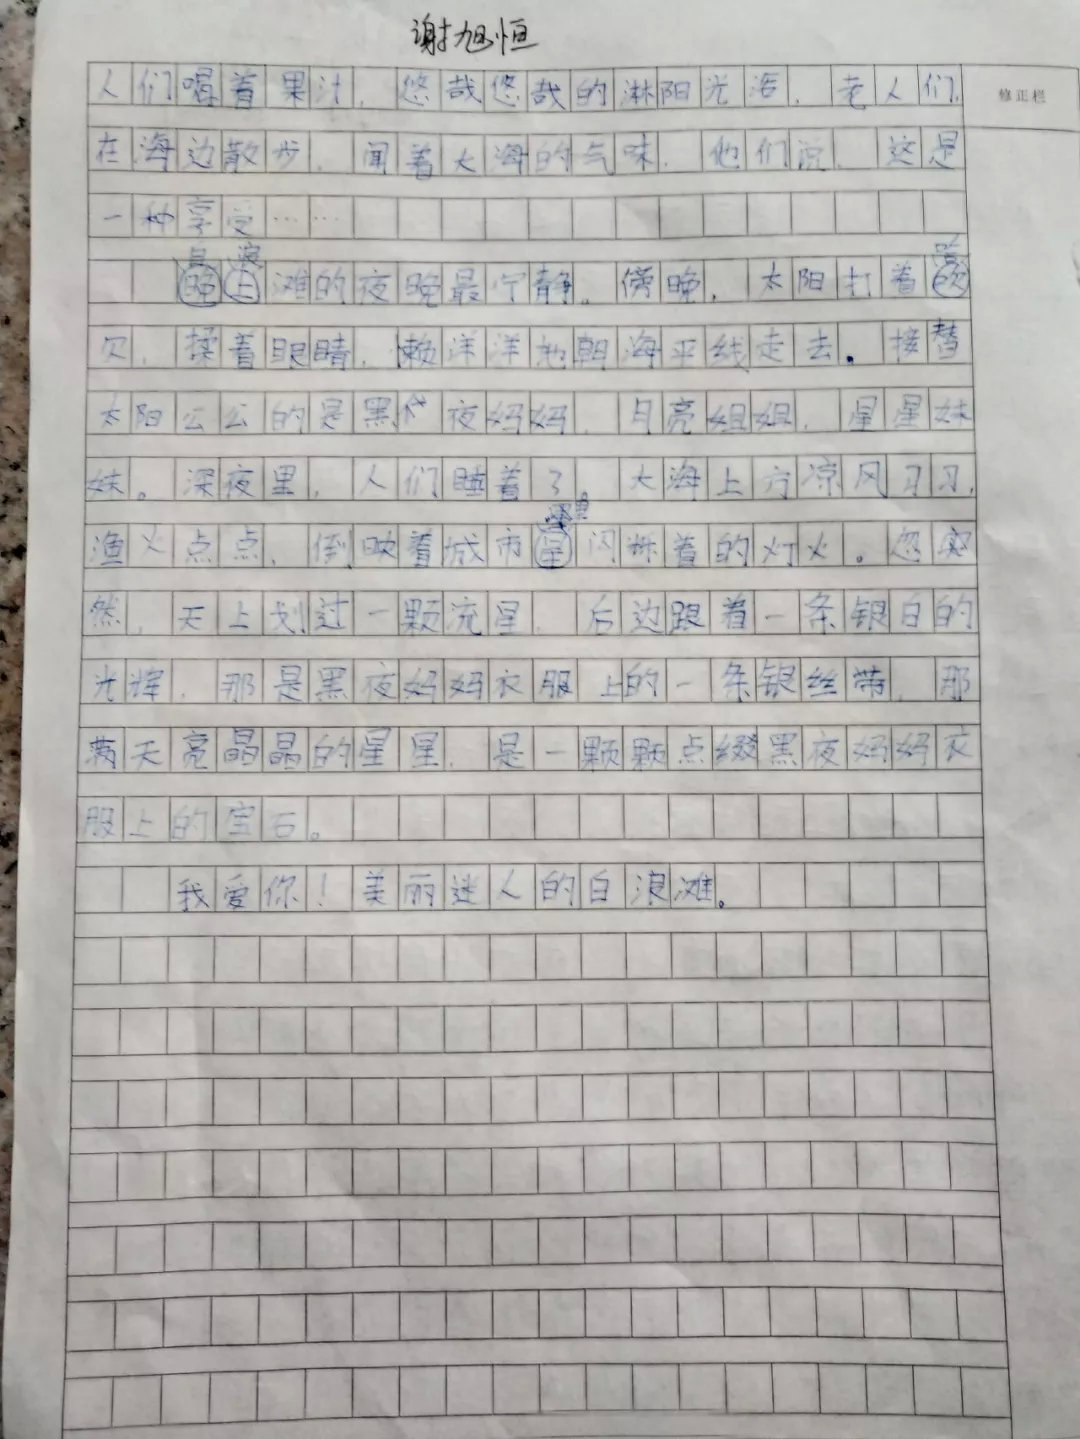 谢旭恒
人们喝着果汁，悠哉悠哉的淋阳光浴，老人们，
修正栏
在海边散步，闻着大海的气味，他们说，这是
一种享受……
白浪
晚上滩的夜晚最宁静。傍晚，太阳打着欧
欠，揉着眼睛，懒洋洋地朝海平线走去。接替
太阳公公的是黑夜妈妈，月亮姐姐，星星妹
妹。深夜里，人们睡着了。大海上方凉风习习，
渔火点点，倒映着城市星闪烁着的灯火。忽突
然，天上划过一颗流星，后边跟着一条银白的
光辉，那是黑夜妈妈衣服上的一条银丝带，那
满天亮晶晶的星星，是一颗颗点缀黑夜妈妈衣
服上的宝石。
我爱你！美丽迷人的白浪滩。